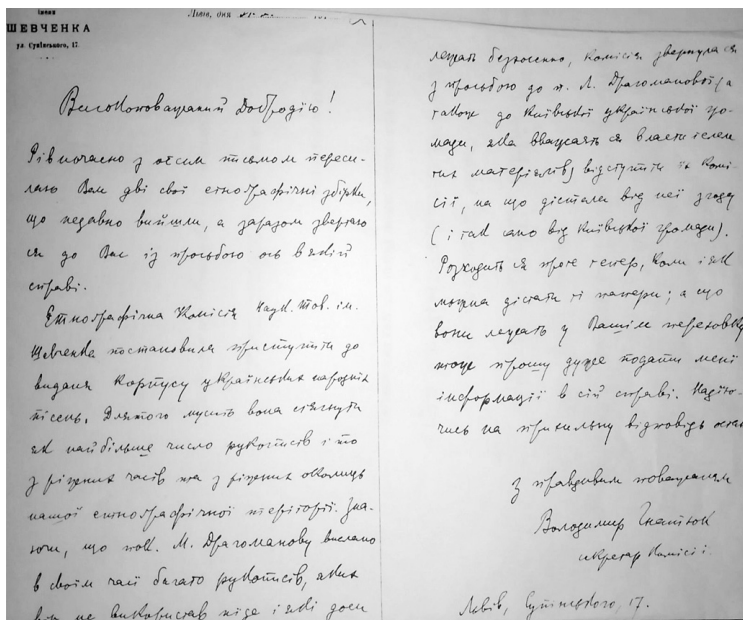 ШЕВЧЕНКА
ул. Супінського, 17.
Львів, дня
Високоповажаний Добродію!
Рівночасно з осим письмом переси-
лаю Вам дві свої етнографічні збірки,
що недавно вийшли, а заразом звертаю
ся до Вас із просьбою ось в якій
справі.
Етнографічна Комісія Наук. Тов. ім.
Шевченка постановила приступити до
видання корпусу українських народніх
пісень. Для того мусить вона стягнути
як найбільше число рукописів і то
з ріжних часів та з ріжних околиць
нашої етнографічної території. Зна-
ючи, що пок. М. Драгоманову вислано
в своїм часі багато рукописів, яких
він не використав ніде і які доси
лежать безхосенно, Комісія звернула ся
з просьбою до п. Л. Драгоманової (а
також до Київської української гро-
мади, яка вважаєть ся властителем
тих матеріялів) відступити їх Комі-
сії, на що дістала від неї згоду
(і так само від Київської громади).
Розходить ся проте тепер, коли і як
можна дістати ті папери; а що
вони лежать у Вашім переховку
тож прошу дуже подати мені
інформації в сій справі. Надію-
чись на прихильну відповідь
з правдивим поважанням
Володимир Гнатюк
секретар Комісії.
Львів, Супінського, 17.